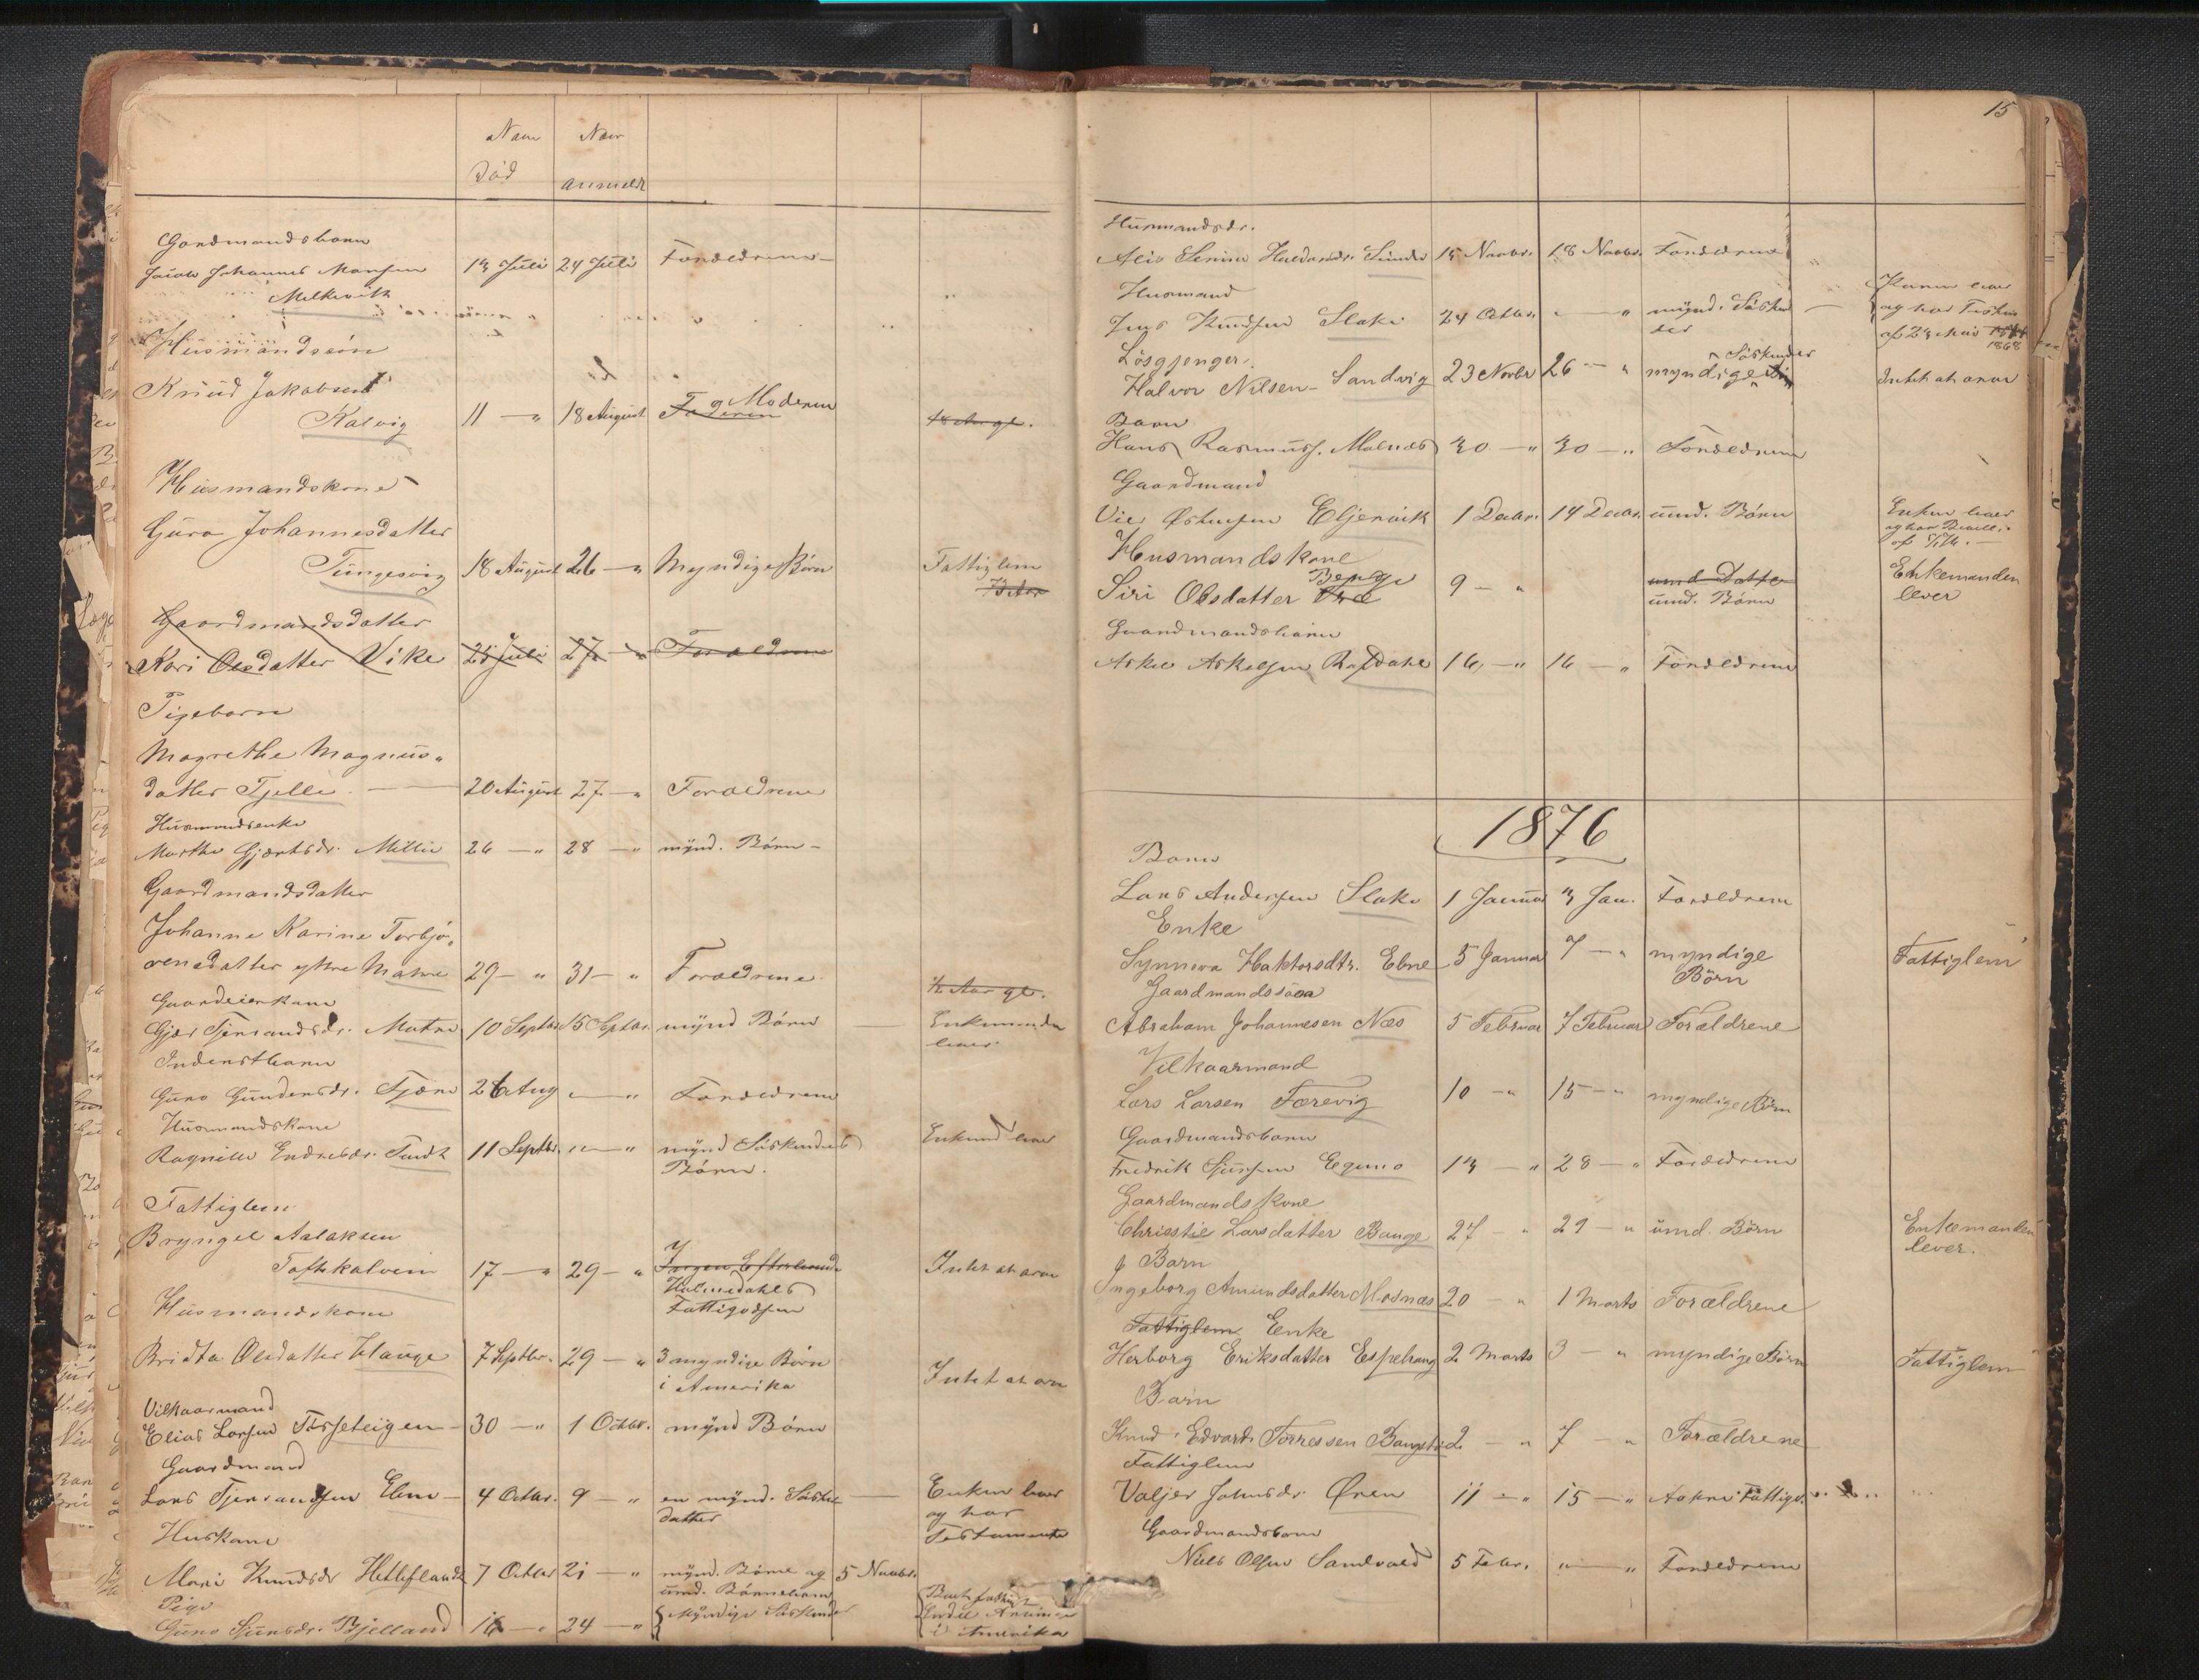 Naar Naar
Død anmeldt
Gaardmandsbarn
Jacob Johannes Monsen 13 Juli 24 Juli Forældrene
Melkevik
Husmandssøn
Knud Jakobsen
Kalvig 11 — " 18 August Faderen Moderen
Husmandskone
Guro Johannesdatter
Tungesvig 18 August 26 — " Myndige Børn Fattiglem
Gaardmandsdatter
Kari Olsdatter Vike 25 Juli 27 — " Forældrene
Pigebarn
Magrethe Magnus-
datter Tjelle 20 August 27 — " Forældrene
Husmandsenke
Marthe Gjertsdr. Millie 26 — " 28 — " mynd. Børn
Gaardmandsdatter
Johanne Karine Torbjø-
rensdatter ytre Matre 29 — " 31 — " Forældrene
Gaardeierkone
Tjerandsdr. Matre 10 Septbr. 15 Septbr. mynd Børn Enkemanden
lever
Inderstbarn
Guro Gundersdr. Tjæro 26 Aug — " Forældrene
Husmandskone
Ragnilde Endresdr. Tindt 11 Septbr. " — " mynd Søskende Enkemd lever
Børn.
Fattiglem
Bryngel Aslaksen
Toftekalven 17 — " 29 — " Ingen Efterlevende Intet at arve
Holmedahls
Fattigvæsen
Husmandskone
Bridta Olsdatter Hauge 7 Septbr. 29 — " 3 myndige Børn
i Amerika Intet at arv
Vilkaarmand
Elias Larsen Tesseteigen 30 — " 1 Octbr. mynd Børn
Gaardmand
Lars Tjerandsen Ebne 4 Octbr. 9 — " en mynd. Søster- Enken lever
datter og har
Testamente
Huskone
Mari Knudsdr Hetleflaadt 7 Octbr 21 — " mynd. Børn og 5 Novbr.
umd. Børnebørn
Pige
Guro Sjursdr. Bjelland 16 — " 24 — " Myndige Søskende
i Amerika
15
Husmandsdr.
Sunde 15 Novbr. 18 Novbr. Forældrene
Husmand Konen lever
Jens Knudsen Slake 24 Octbr. — " mynd. Søsken- og har
der af 23 Mai
1868
Løsgjenger.
Halvor Nilsen Sandvig 23 Novbr 26 — " myndige Søskender Intet at arve
Barn
Hans Rasmuss. Molnes 30 — " 30 — " Forældrene
Gaardmand
Østensen Eljervik 1 Decbr. 14 Decbr. umd. Børn Enken lever
og har Bevill.
Husmandskone
Siri Olsdatter Berge 9 — " umd Datter Enkemanden
umd. Børn lever
Gaardmandsbarn
Askel Askelsen Rafdahl 16 — " 16 — " Forældrene
1876
Barn
Lars Andersen Slake 1 Januar 3 Jan. Forældrene
Enke
Synneva Haktorsdtr. Ebne 5 Januar 7 — " myndige Fattiglem
Børn
Gaardmandssøn
Abraham Johannesen Næs 5 Februar 7 Februar Forældrene
Vilkaarmand
Lars Larsen Færevig 10 — " 15 — " myndige Børn
Gaardmandsbarn
Fredrik Sjursen Egeno 13 — " 28 — " Forældrene
Gaardmandskone
Christie Larsdatter Bauge 27 — " 29 — " umd. Børn Enkemanden
lever.
Barn
Ingeborg Amundsdatter Mosnæs 20 — " 1 Marts Forældrene
Fattiglem Enke
Herborg Eriksdatter Espehaug 2 Marts 3 — " myndige Børn Fattiglem
Barn
Knud Edvard Torressen Baugst 2 — " 7 — " Forældrene
Fattiglem
Valjer Johnsdr. Øren 11 — " 15 — " Aakre Fattigv.
Gaardmandsbarn
Niels Olsen Sandvold 5 Febr. " — " Forældrene